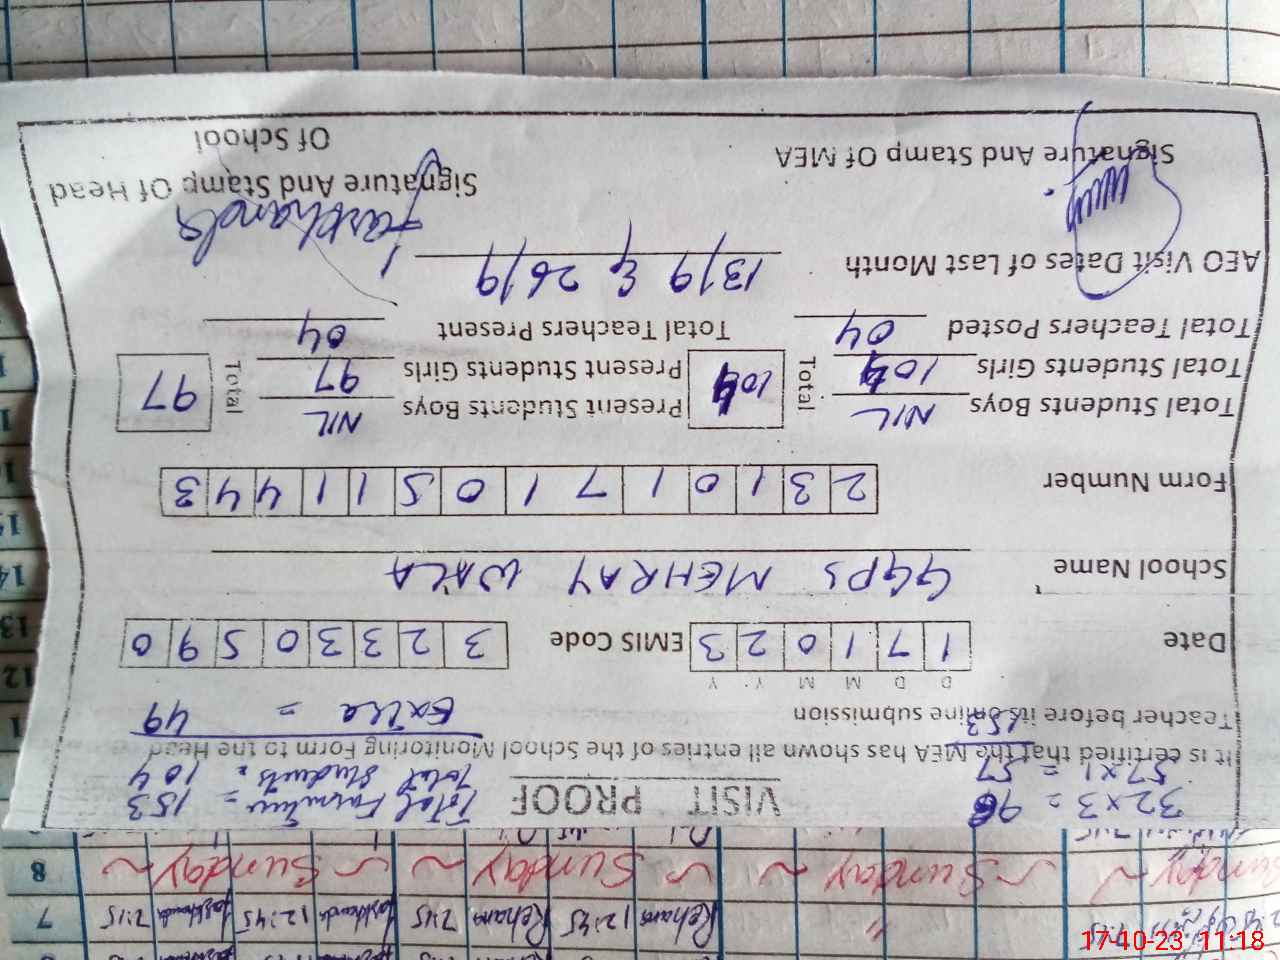 32 x 3 = 96
57 x 1 = 57
153
VISIT PROOF
Total Furniture = 153
Total Students = 104
Extra = 49
It is certified that the MEA has shown all entries of the School Monitoring Form to the Head
Teacher before its online submission
D D M M Y Y
Date 1 7 1 0 2 3 EMIS Code 3 2 3 3 0 5 9 0
School Name GGPS MEHRAY WALA
Form Number 2 3 1 0 1 7 1 0 5 1 1 4 4 3
Total Students Boys NIL Total 104 Present Students Boys NIL Total 97
Total Students Girls 104 Present Students Girls 97
Total Teachers Posted 04 Total Teachers Present 04
AEO Visit Dates of Last Month 13/9 & 26/9
Signature And Stamp Of MEA
Signature And Stamp Of Head
Of School
8 Sunday Sunday Sunday Sunday Sunday Sunday
7 7:15 12:45 7:45 Reham 12:45 Reham
12
13
14
17-10-23 11:18